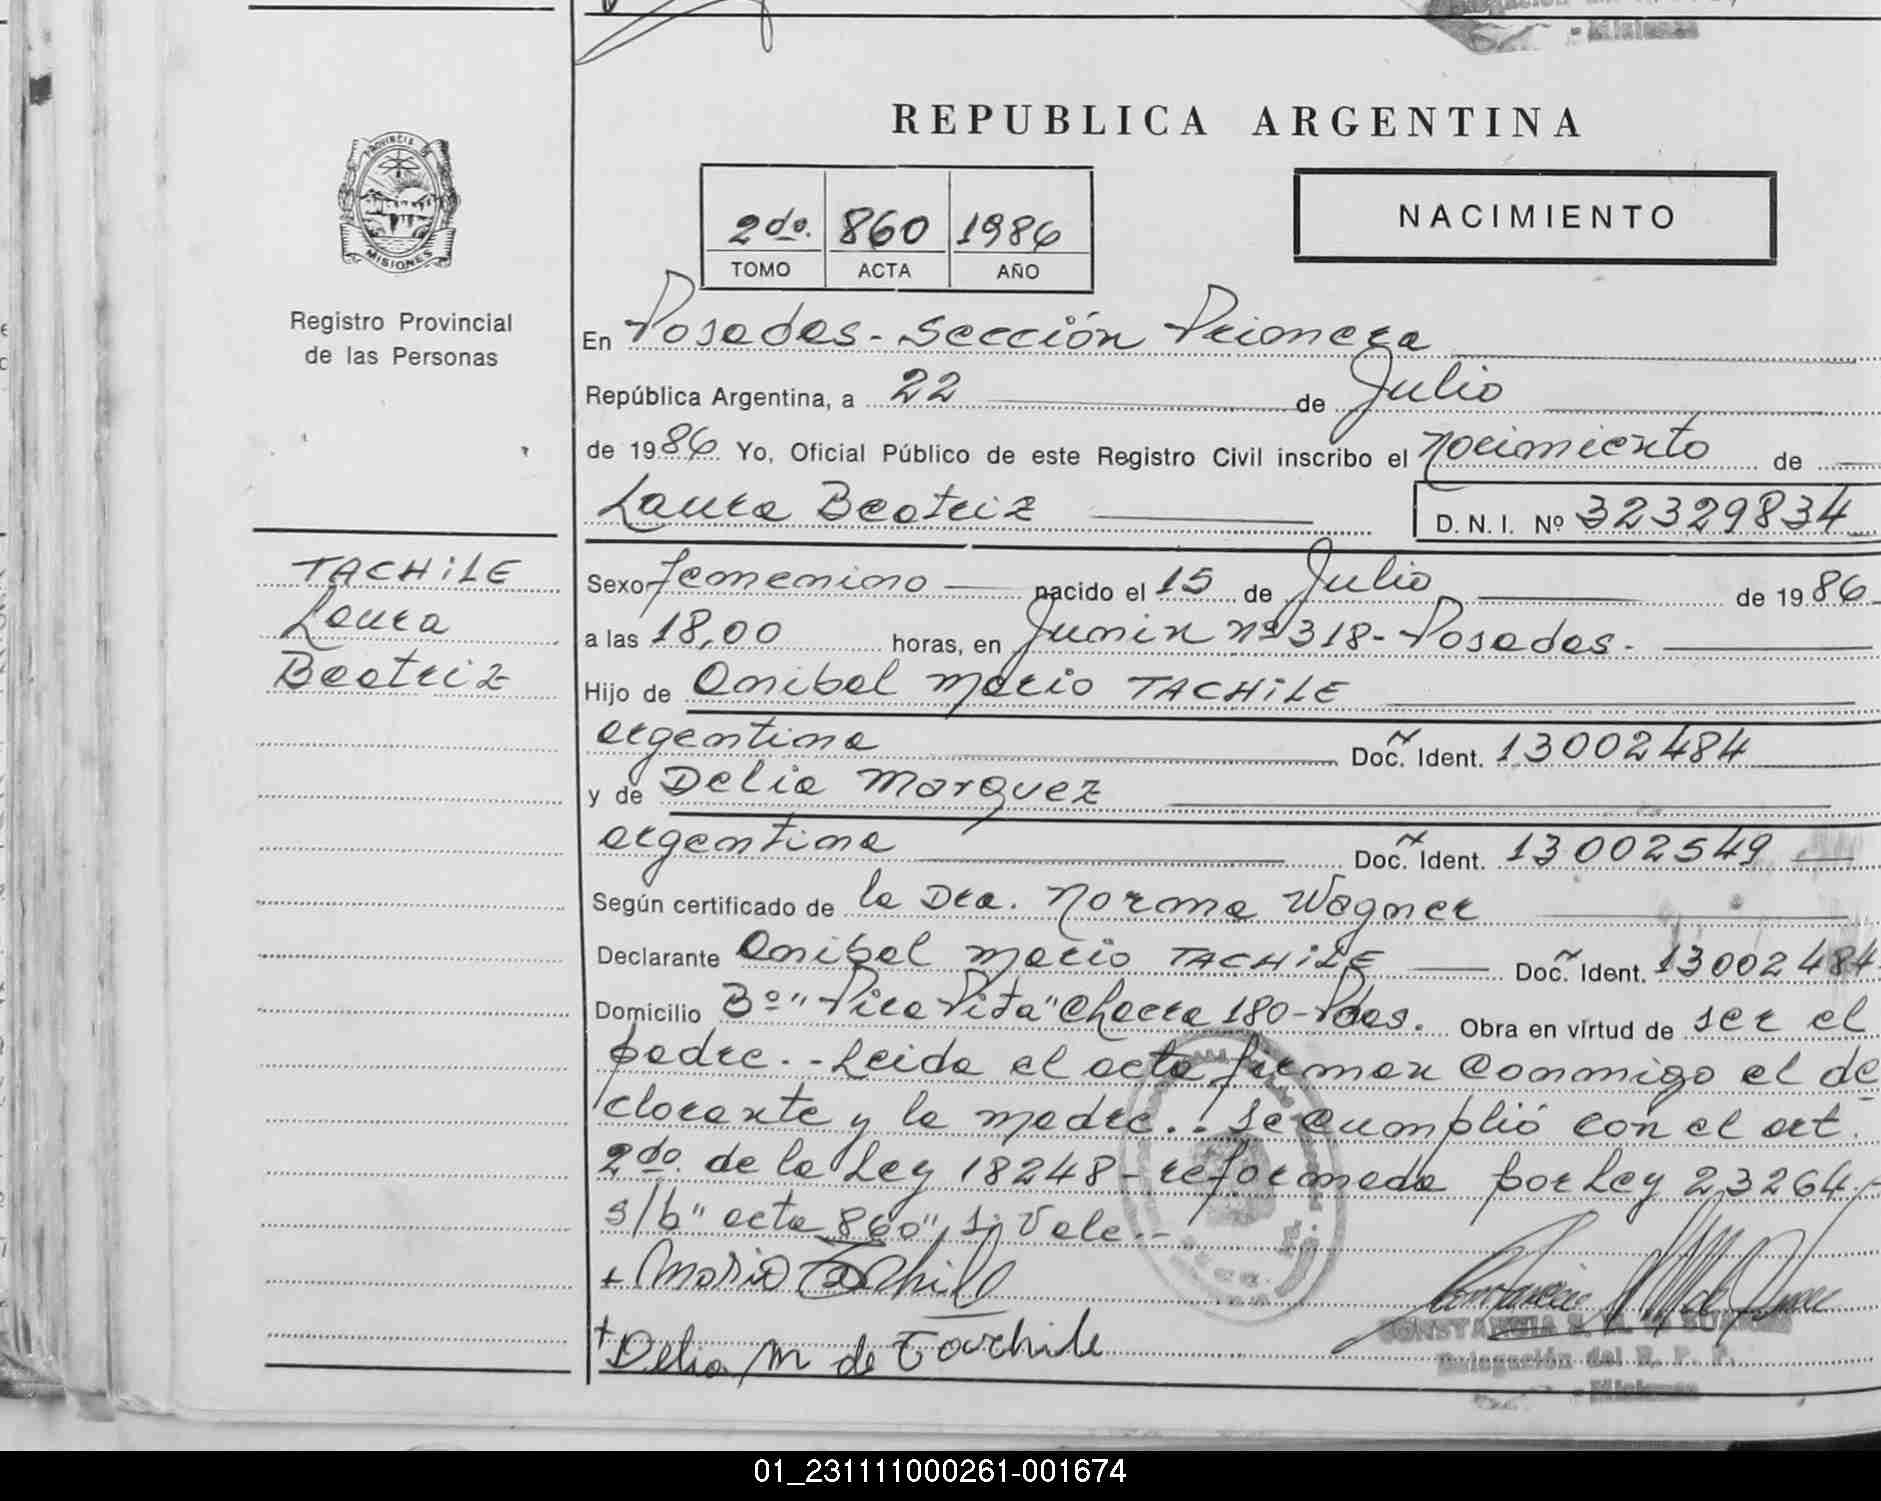 - Misiones
REPUBLICA ARGENTINA
PROVINCIA DE
MISIONES
2do. 860 1986
TOMO ACTA AÑO
NACIMIENTO
Registro Provincial
de las Personas
En Posadas - Sección Primera
República Argentina, a 22 de Julio
de 1986 Yo, Oficial Público de este Registro Civil inscribo el nacimiento de
Laura Beatriz D.N.I. Nº 32329834
TACHiLE
Laura
Beatriz
Sexo femenino nacido el 15 de Julio de 1986
a las 18,00 horas, en Junin nº 318 - Posadas -
Hijo de Anibal Mario TACHiLE
argentina Doc. Ident. 13002484
y de Delia Marquez
argentina Doc. Ident. 13002549
Según certificado de la Dra. Norma Wagner
Declarante Anibal Mario TACHiLE Doc. Ident. 13002484
Domicilio Bº "Pira Pita" Chacra 180 - Pdas. Obra en virtud de ser el
padre. - Leida el acta firman conmigo el de
clarante y la madre. . Se cumplió con el art.
2do. de la Ley 18248 - reformada por Ley 23264 . -
s/b "acta 860", si Vale. -
+ Mario Tachile
+ Delia M de Tachile
CONSTANCIA
Delegación del R. P. P.
- Misiones
01_231111000261-001674